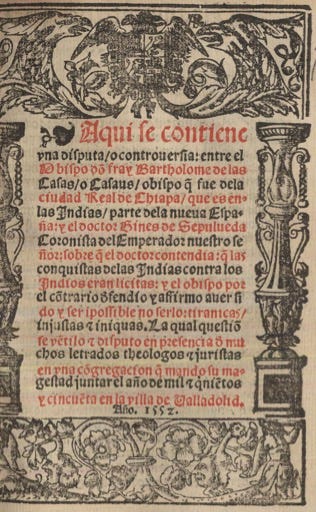 Aqui se contiene
vna disputa/o controuersia: entre el
Obispo dō fray Bartholome de las
Casas/o Casaus/obispo q̄ fue dela
ciudad Real de Chiapa/que es en
las Indias/parte dela nueua Espa-
ña: y el doctor Gines de Sepulueda
Coronista del Emperador nuestro se
ñor: sobre q̄ el doctor contendia: q̄ las
conquistas delas Indias contra los
Indios eran licitas: y el obispo por
el cōtrario dfendio y affirmo auer si
do y ser ĩpossible no serlo: tiranicas/
injustas ⁊ iniquas. La qual questiō
se vētilo ⁊ disputo en presencia ð mu
chos letrados theologos ⁊ juristas
en vna cōgregacion q̄ mando su ma-
gestad juntar el año de mil ⁊ q̄niētos
y cincuēta en la villa de Valladolid.
Año. 1552.